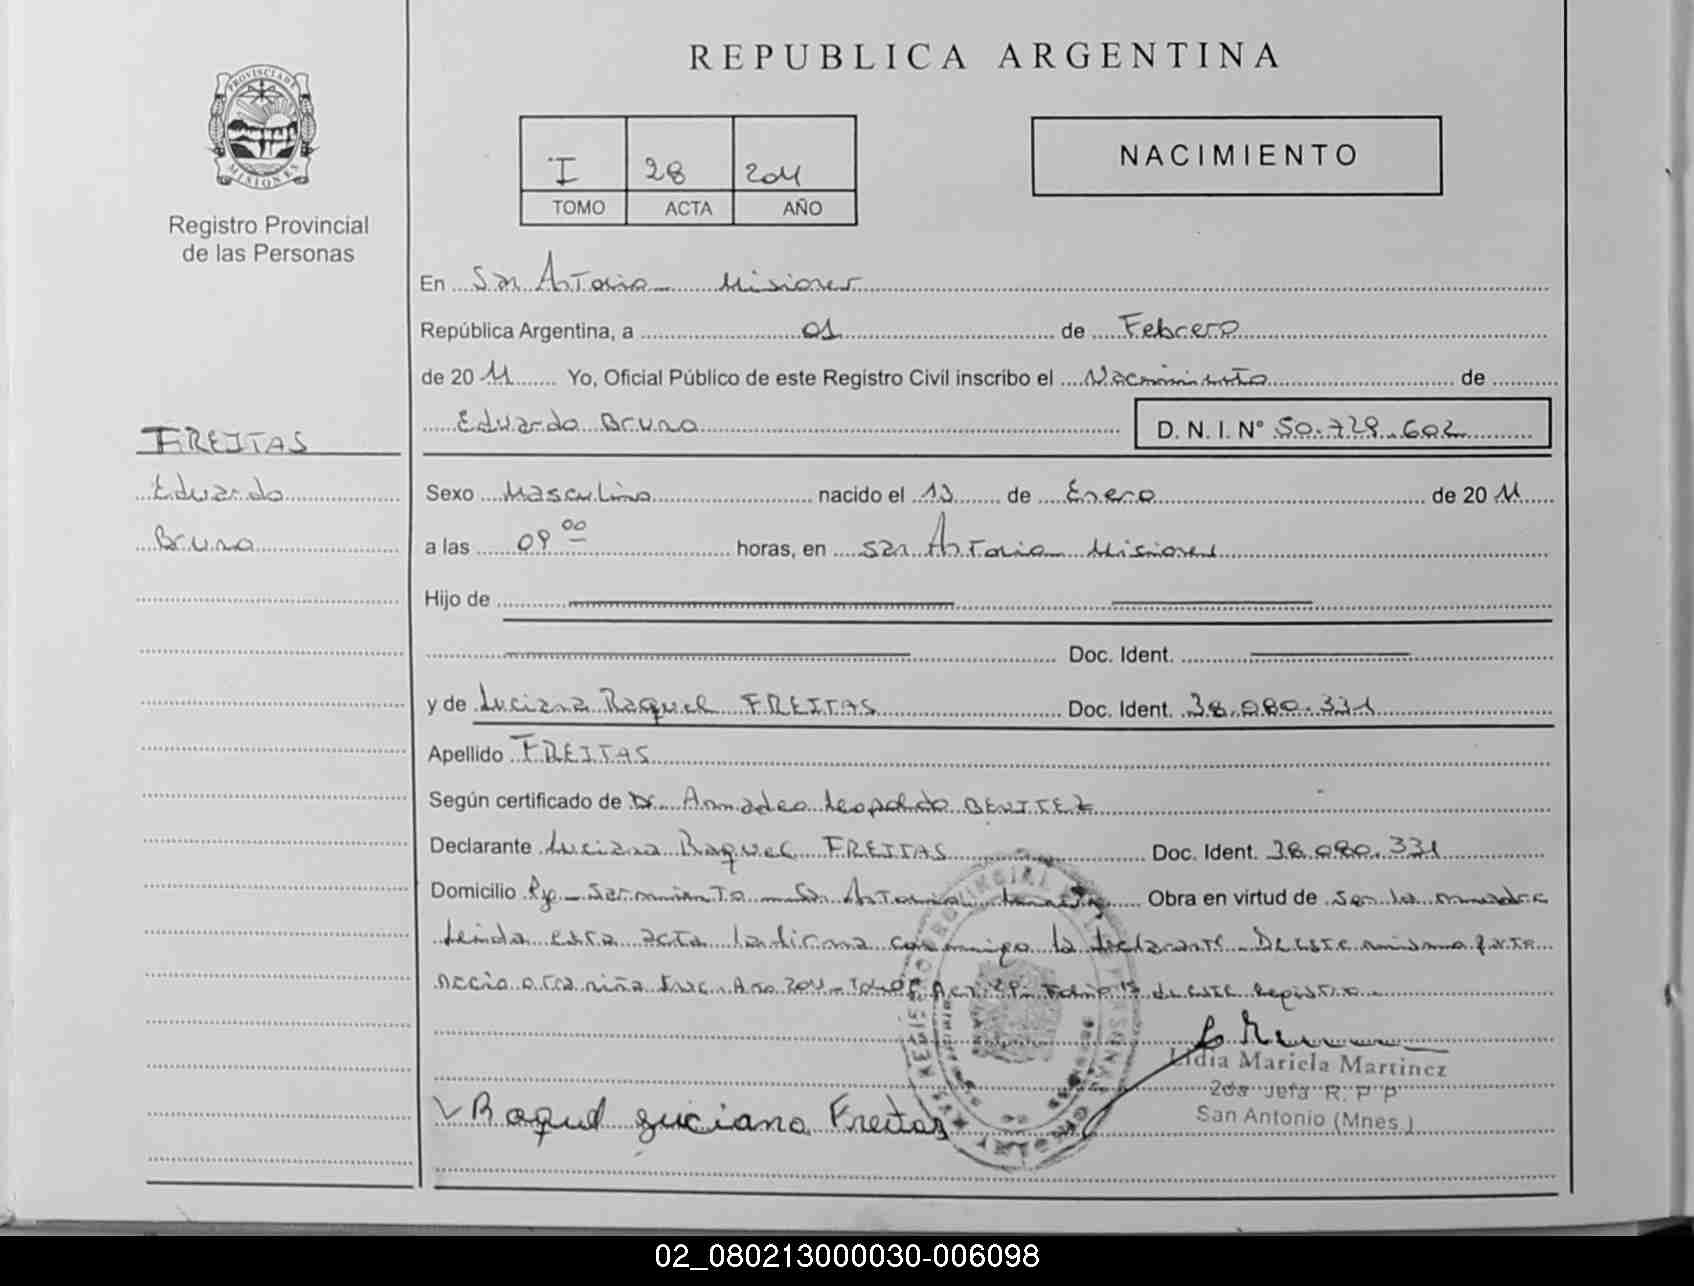 REPUBLICA ARGENTINA
PROVINCIA DE
MISIONES
Registro Provincial
de las Personas
I 28 2011
TOMO ACTA AÑO
NACIMIENTO
En San Antonio Misiones
República Argentina, a 01 de Febrero
de 2011 Yo, Oficial Público de este Registro Civil inscribo el Nacimiento de
Eduardo Bruno D. N. I. N° 50.729.602
FREITAS
Eduardo
Bruno
Sexo Masculino nacido el 13 de Enero de 2011
a las 09 00 horas, en San Antonio Misiones
Hijo de
Doc. Ident.
y de Luciana Raquel FREITAS Doc. Ident. 38.080.331
Apellido FREITAS
Según certificado de Dr. Amadeo Leopoldo BENITEZ
Declarante Luciana Raquel FREITAS Doc. Ident. 38.080.331
Domicilio Sarmiento San Antonio Obra en virtud de Ser la madre
Leida esta acta la firma conmigo la declarante De este mismo parto
nacio otra niña Año 2011 Tomo I Acta Folio de este Registro
Lidia Mariela Martinez
2da Jefa R. P P
San Antonio (Mnes.)
Raquel Luciana Freitas
02_080213000030-006098